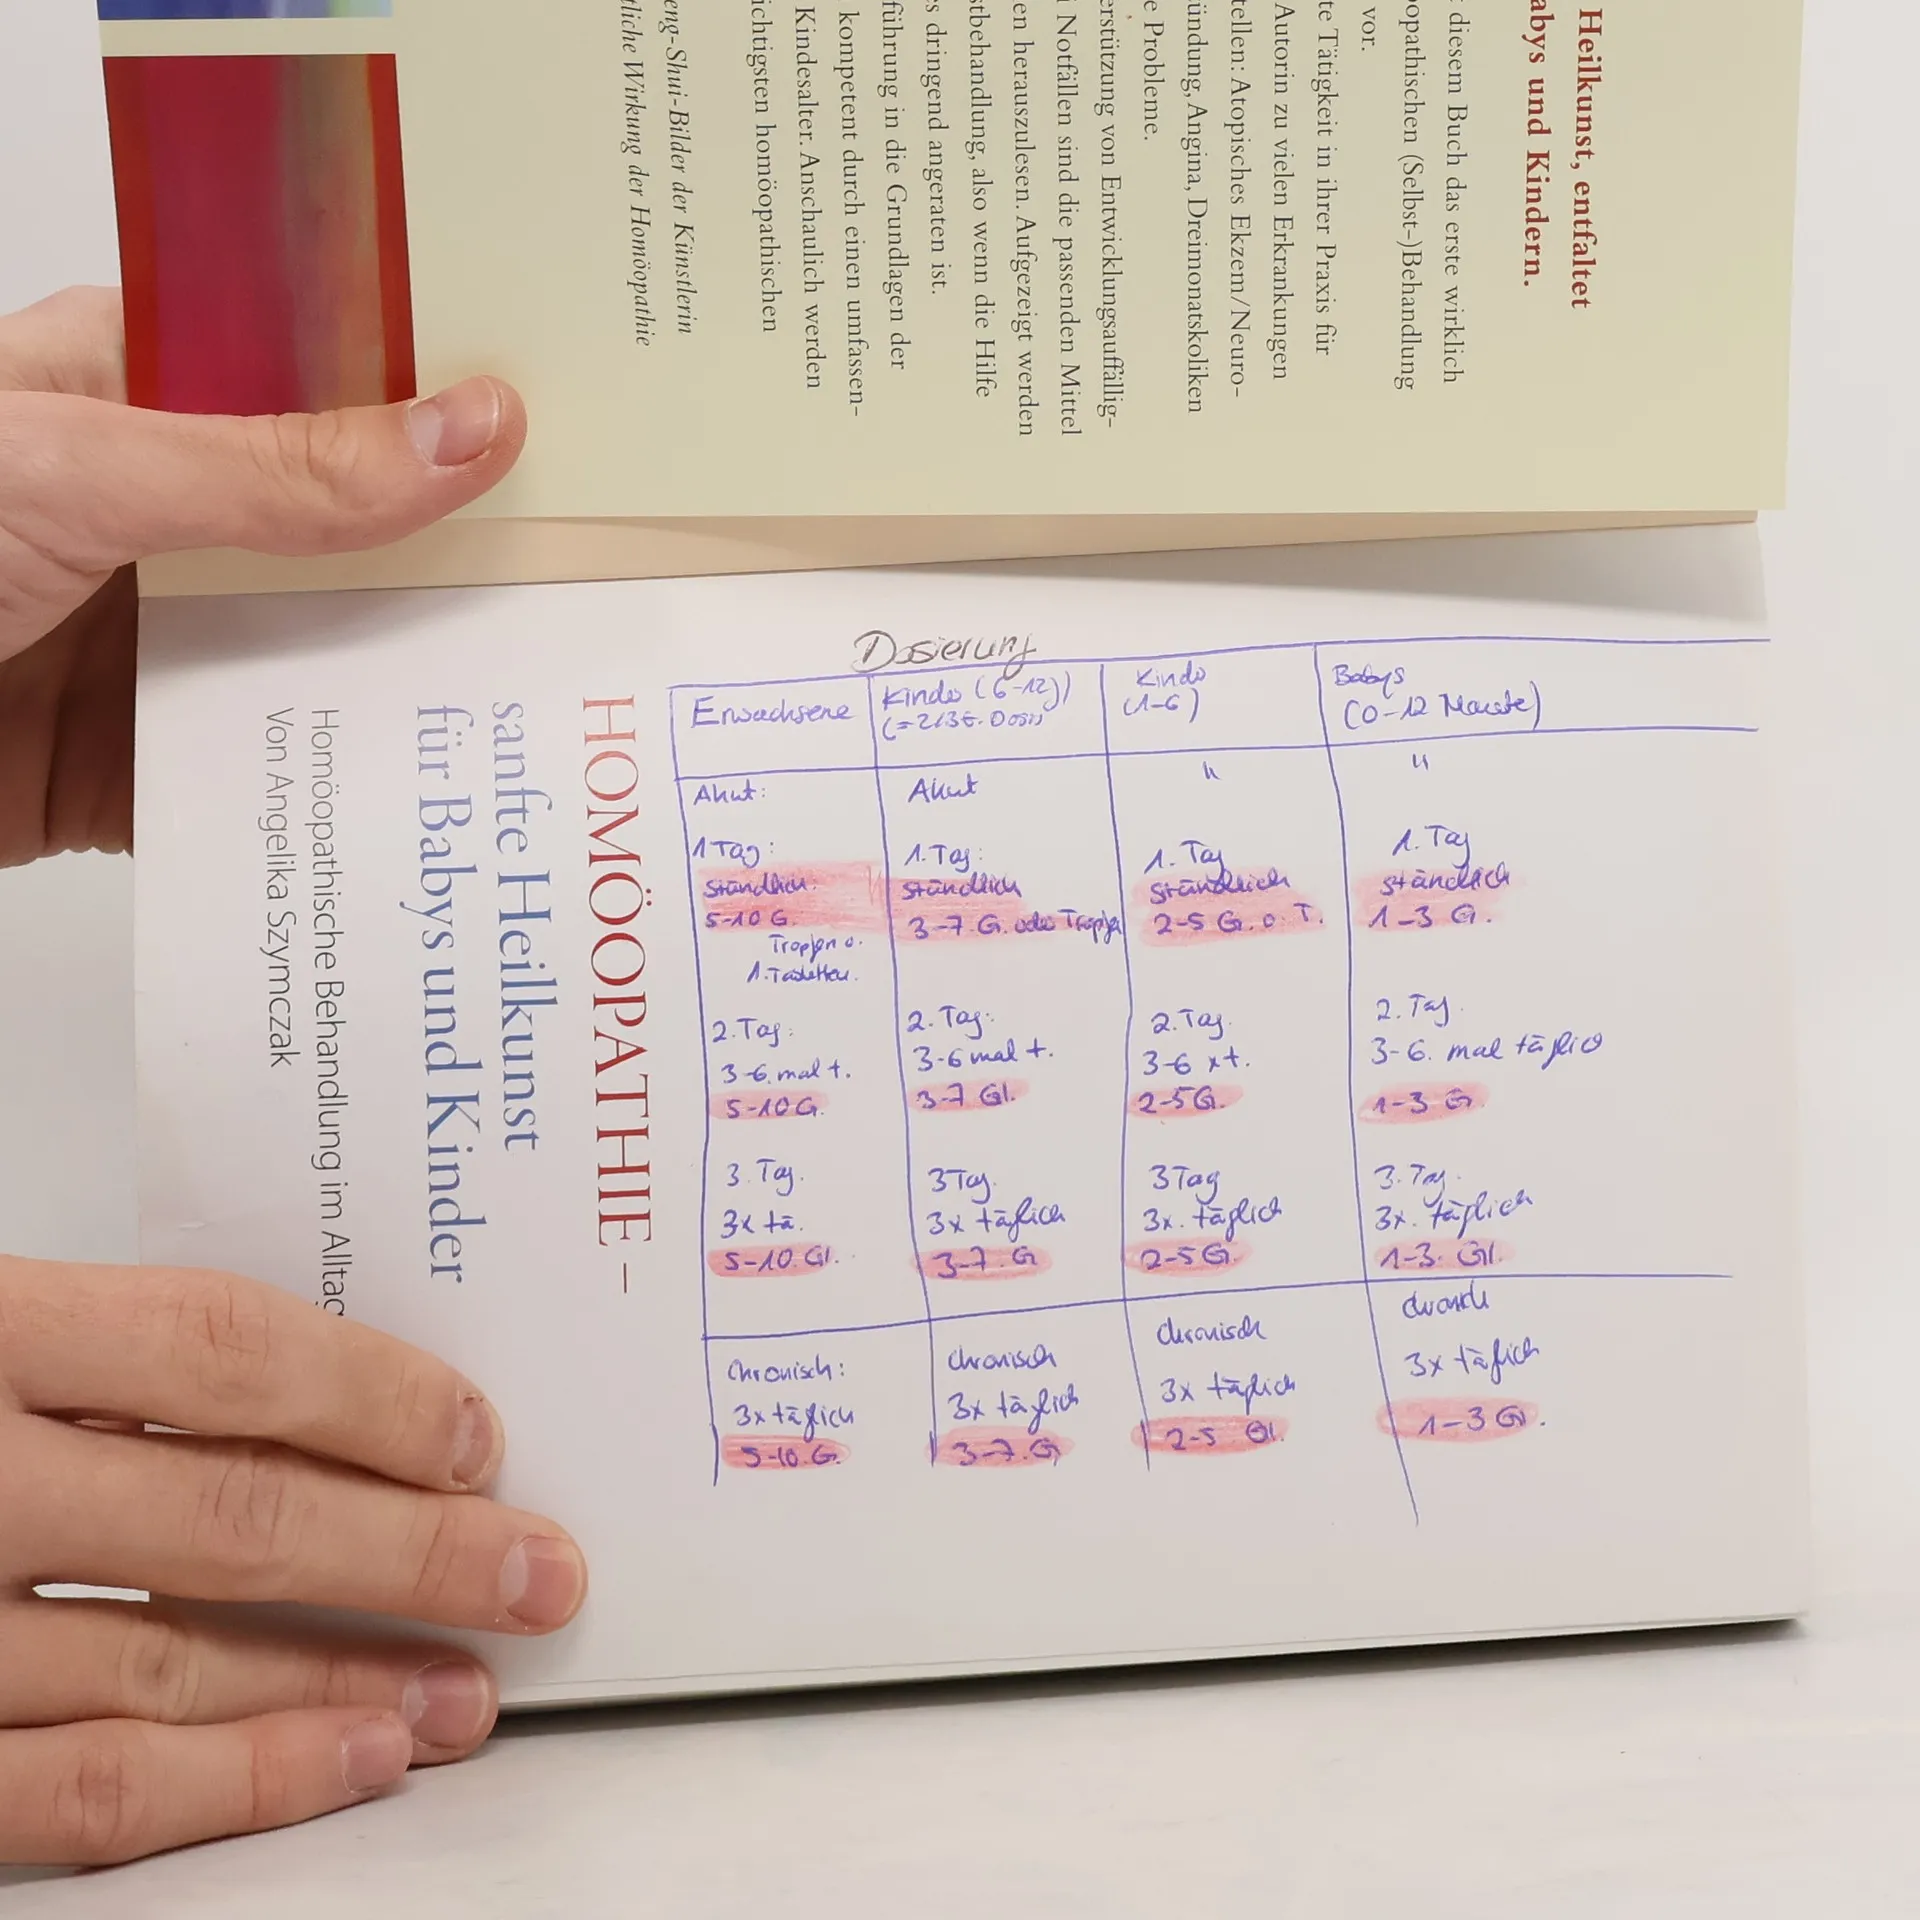 Heilkunst, entfaltet
abys und Kindern.
diesem Buch das erste wirklich
opathischen (Selbst-)Behandlung
vor.
te Tätigkeit in ihrer Praxis für
Autorin zu vielen Erkrankungen
tellen: Atopisches Ekzem/Neuro-
ündung, Angina, Dreimonatskoliken
e Probleme.
erstützung von Entwicklungsauffällig-
i Notfällen sind die passenden Mittel
en herauszulesen. Aufgezeigt werden
stbehandlung, also wenn die Hilfe
es dringend angeraten ist.
führung in die Grundlagen der
kompetent durch einen umfassen-
Kindesalter. Anschaulich werden
ichtigsten homöopathischen
eng-Shui-Bilder der Künstlerin
tliche Wirkung der Homöopathie
HOMÖOPATHIE –
sanfte Heilkunst
für Babys und Kinder
Homöopathische Behandlung im Alltag
Von Angelika Szymczak
Dosierung
Erwachsene
Akut:
1 Tag:
stündlich:
5-10 G.
Tropfen o.
1. Tabletten.
2. Tag:
3-6. mal t.
5-10 G.
3. Tag.
3x tä.
5-10. Gl.
Chronisch:
3x täglich
5-10. G.
Kinder (6-12j)
(=2/3 E. Dosis
Akut
1. Tag:
stündlich
3-7. G. oder Tropfen
2. Tag:
3-6 mal t.
3-7 Gl.
3 Tag.
3x täglich
3-7. G
Chronisch
3x täglich
3-7. G
Kinder
(1-6)
"
1. Tag
stündlich
2-5 G. o. T.
2. Tag.
3-6 xt.
2-5 G.
3 Tag
3x. täglich
2-5 G.
Chronisch
3x täglich
2-5 Gl.
Babys
(0-12 Monate)
"
1. Tag
stündlich
1-3 G.
2. Tag.
3-6. mal täglich
1-3 G
3. Tag.
3x. täglich
1-3. Gl.
chronisch
3x täglich
1-3 Gl.